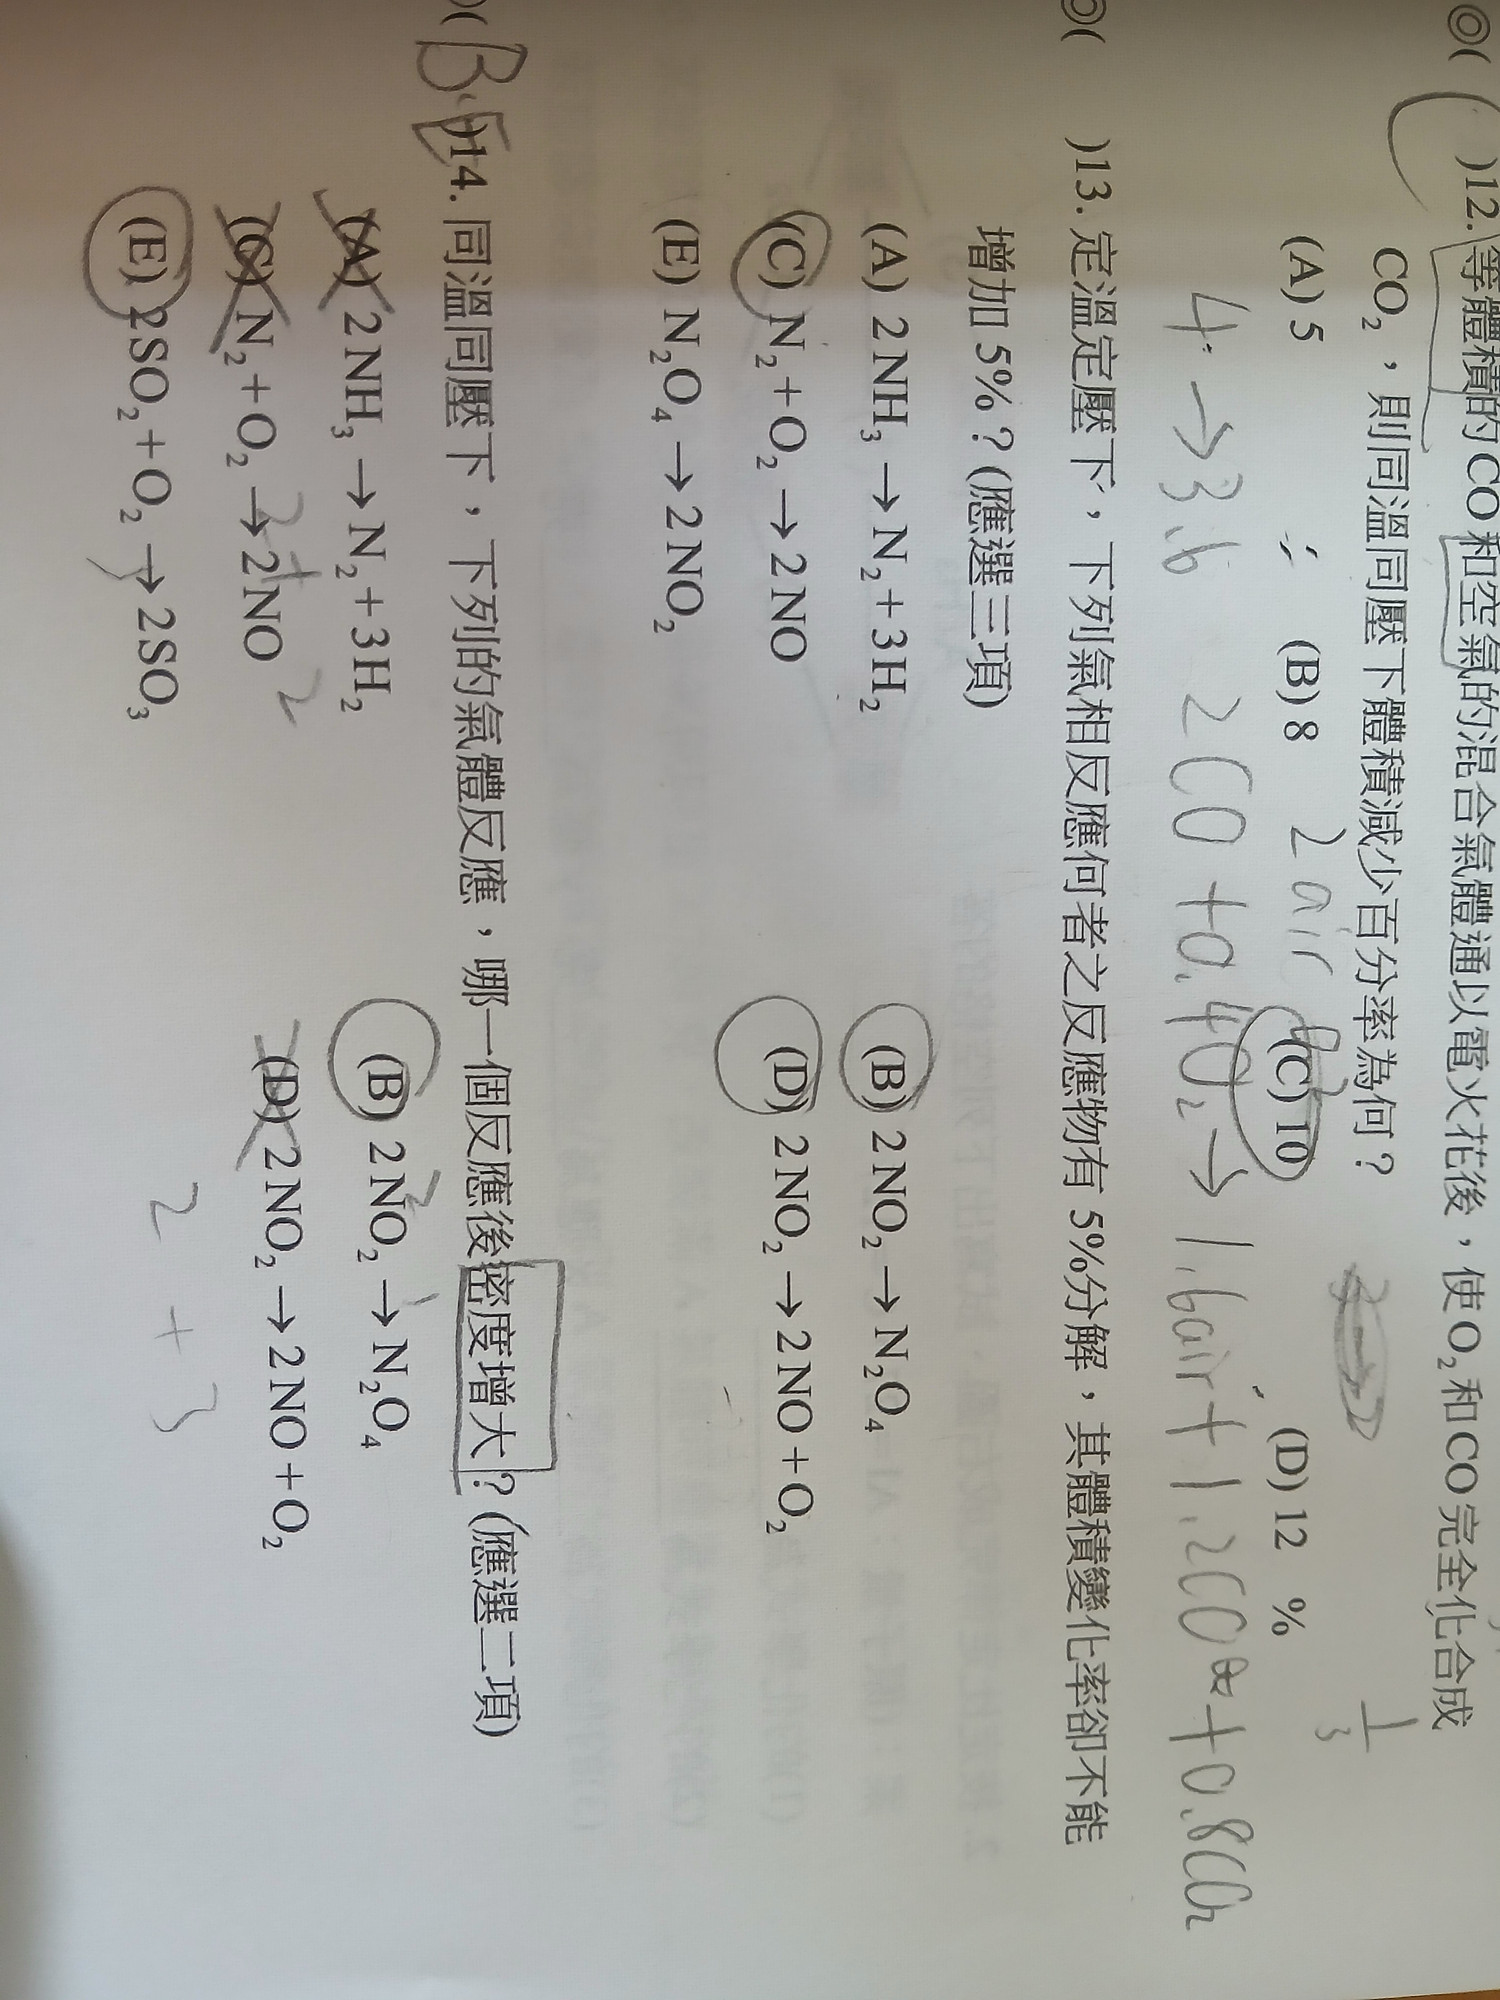 ◎( )12. 等體積的CO和空氣的混合氣體通以電火花後，使O₂和CO完全化合成
CO₂，則同溫同壓下體積減少百分率為何？
(A) 5 (B) 8 (C) 10 (D) 12 %
2 air
1/3
4 → 3.6 2CO + 0.4O₂ → 1.6air + 1.2CO + 0.8CO₂
◎( )13. 定溫定壓下，下列氣相反應何者之反應物有 5%分解，其體積變化率卻不能
增加 5%？(應選三項)
(A) 2NH₃ → N₂ + 3H₂ (B) 2NO₂ → N₂O₄
(C) N₂ + O₂ → 2NO (D) 2NO₂ → 2NO + O₂
(E) N₂O₄ → 2NO₂
(B.E)14. 同溫同壓下，下列的氣體反應，哪一個反應後密度增大？(應選二項)
(A) 2NH₃ → N₂ + 3H₂ (B) 2NO₂ → N₂O₄
(C) N₂ + O₂ → 2NO (D) 2NO₂ → 2NO + O₂
(E) 2SO₂ + O₂ → 2SO₃
2 + 3